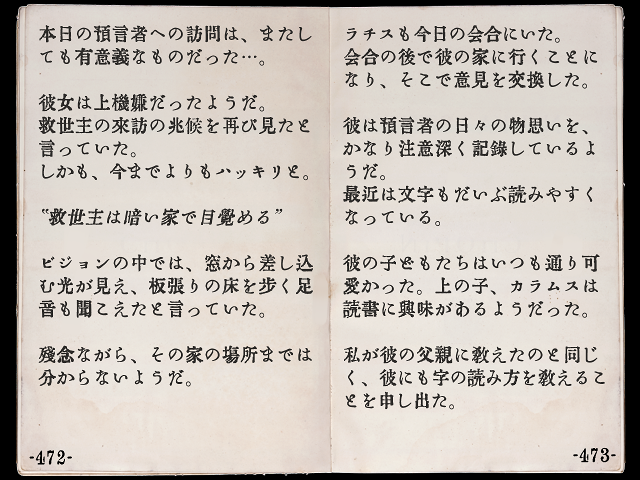 本日の預言者への訪問は、またし
ても有意義なものだった…。
彼女は上機嫌だったようだ。
救世主の來訪の兆候を再び見たと
言っていた。
しかも、今までよりもハッキリと。
“救世主は暗い家で目覺める”
ビジョンの中では、窓から差し込
む光が見え、板張りの床を歩く足
音も聞こえたと言っていた。
殘念ながら、その家の場所までは
分からないようだ。
-472-
ラチスも今日の会合にいた。
会合の後で彼の家に行くことに
なり、そこで意見を交換した。
彼は預言者の日々の物思いを、
かなり注意深く記錄しているよ
うだ。
最近は文字もだいぶ読みやすく
なっている。
彼の子どもたちはいつも通り可
愛かった。上の子、カラムスは
読書に興味があるようだった。
私が彼の父親に教えたのと同じ
く、彼にも字の読み方を教えるこ
とを申し出た。
-473-